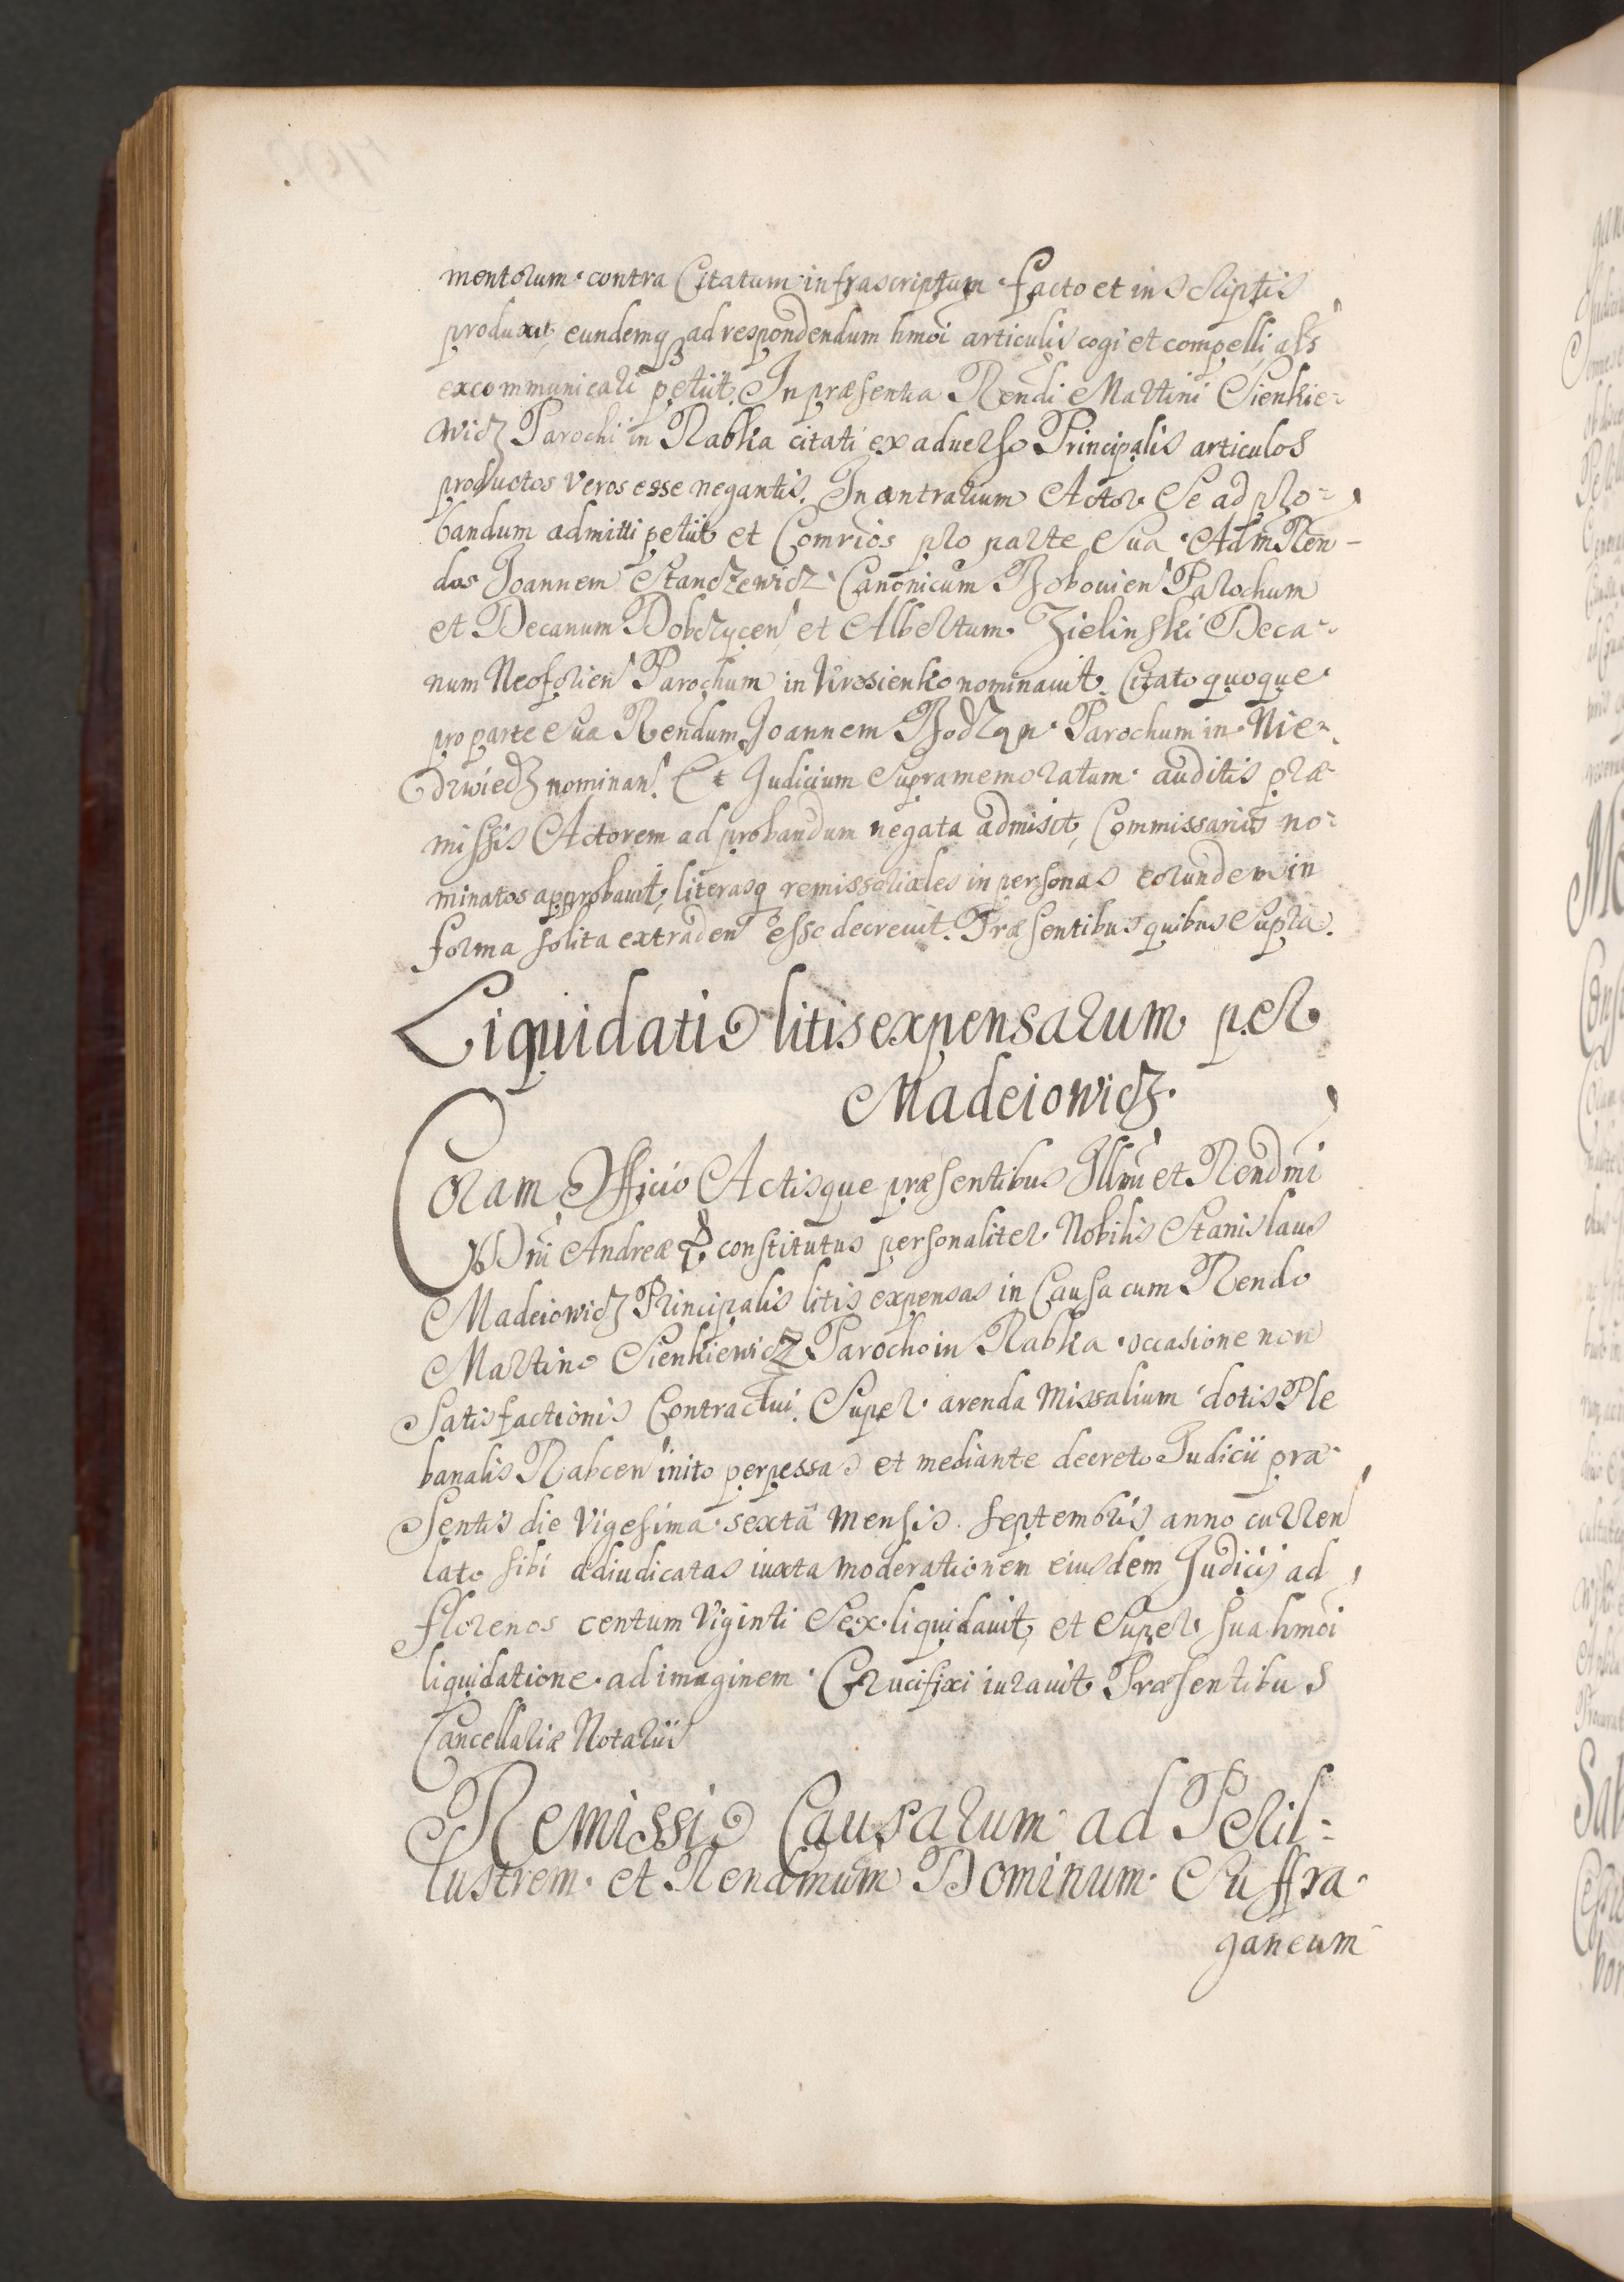 mentorum contra Citatum infrascriptum facto et in scriptis
produxit, eundemq ad respondendum hmoi articulis cogi et compelli, als
excommunicari petiit. In præsentia Rendi Martini Sienkie-
wicz Parochi in Rabka citati ex aduerso Principalis articulos
productos veros esse negantis. In contrarium Actor se ad pro-
bandum admitti petiit et Comrios pro parte sua Adm Ren-
dos Joannem Stanczewicz Canonicum Bobouien Parochum
et Decanum Dobczycen et Albertum Zielinski Deca-
num Neoforien Parochum in Krosienko nominauit. Citato quoque
pro parte sua Rendum Joannem Parochum in Nie-
dzwiedz nominan. Et Judicium supramemoratum auditis præ-
missis Actorem ad probandum negata admisit, Commissarios no-
minatos approbauit, literasq remissoriales in personas eorundem in
forma solita extraden esse decreuit. Præsentibus quibus supra.
Liquidatio litis expensarum per
Madeiowicz.
Coram Officio Actisque præsentibus Illmi et Rendmi
Dni Andreæ constitutus personaliter Nobilis Stanislaus
Madeiowicz Principalis litis expensas in Causa cum Rendo
Martino Sienkiewicz Parocho in Rabka occasione non
satisfactionis Contractui super arenda Missalium dotis Ple
banalis Rabcen inito perpessas et mediante decreto Judicii præ-
sentis die Vigesima sexta Mensis septembris anno curren
lato sibi adiudicatas iuxta moderationem eiusdem Judicij ad
florenos centum Viginti sex liquidauit, et super sua hmoi
liquidatione ad imaginem Crucifixi iurauit Præsentibus
Cancellariæ Notariis
Remissio Causarum ad Peril-
lustrem et Rendmum Dominum Suffra-
ganeum